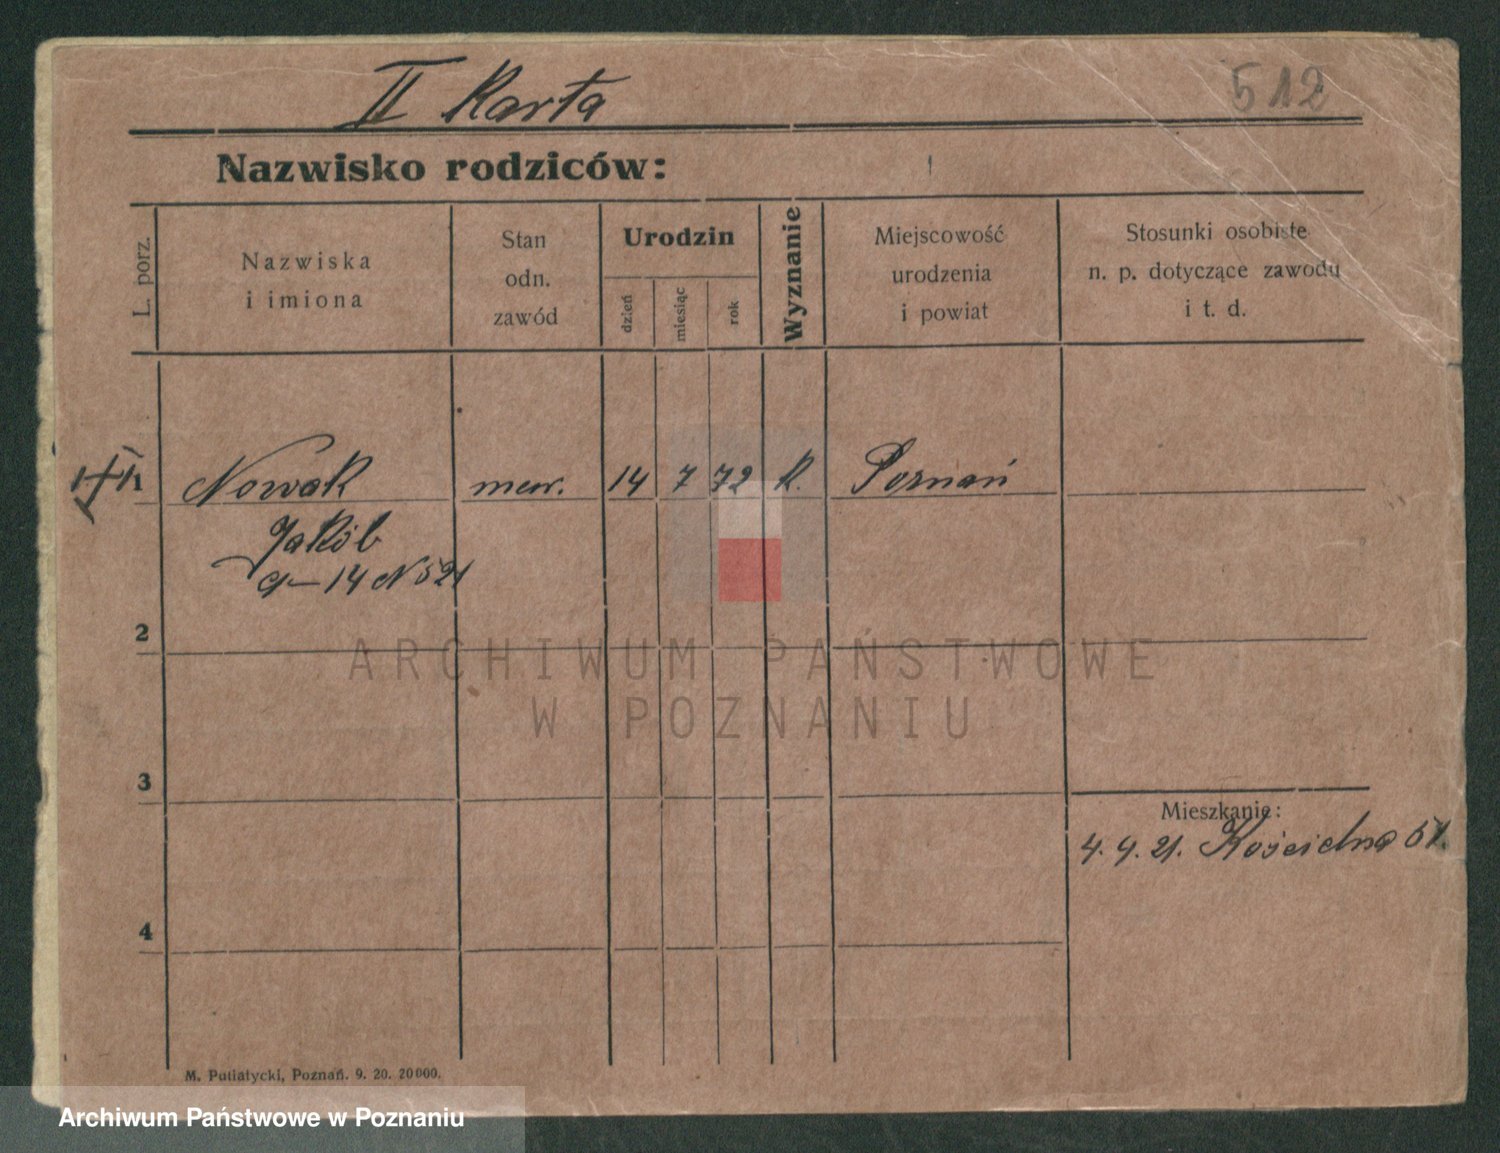 II Karta
512
Nazwisko rodziców:
L. porz.
Nazwiska
i imiona
Stan
odn.
zawód
Urodzin
dzień
miesiąc
rok
Wyznanie
Miejscowość
urodzenia
i powiat
Stosunki osobiste
n. p. dotyczące zawodu
i t. d.
1 Nowak 14 7 72 k. Poznań
Jakób
14 N 521
2
3
4
Mieszkanie:
4. 4. 21. Kościelna
M. Putiatycki, Poznań. 9. 20. 20000.
ARCHIWUM PAŃSTWOWE
W POZNANIU
Archiwum Państwowe w Poznaniu